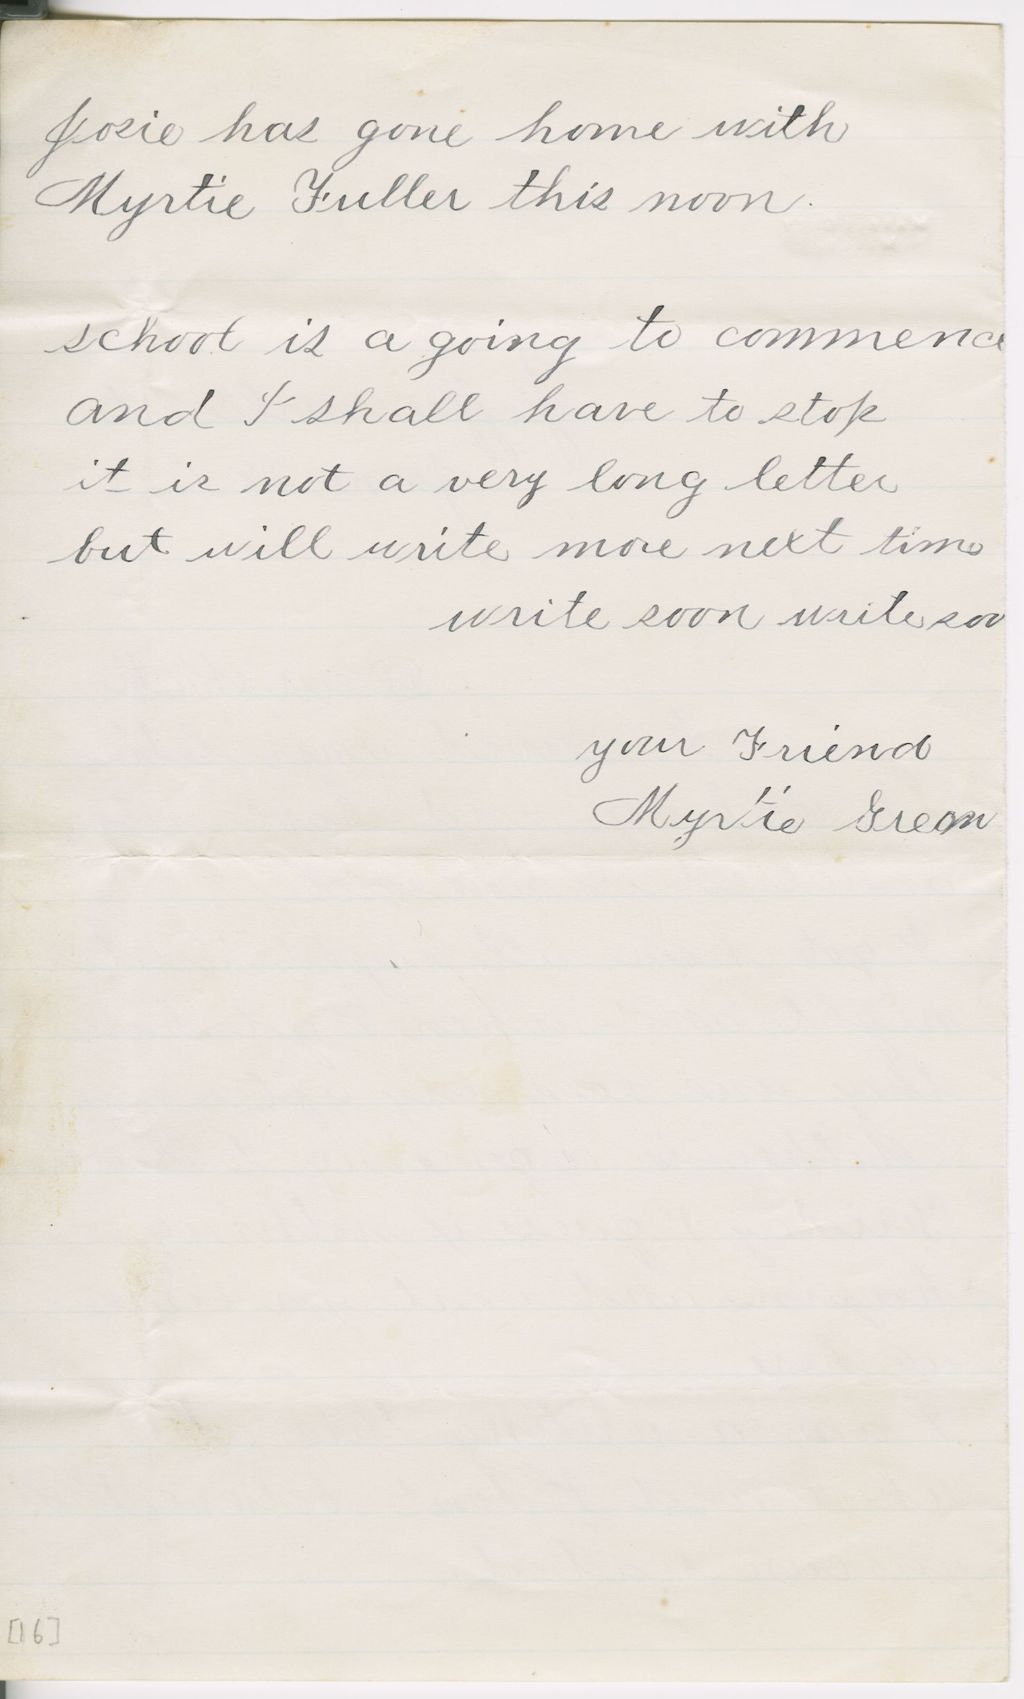 Josie has gone home with
Myrtie Fuller this noon.
school is a going to commence
and I shall have to stop
it is not a very long letter
but will write more next time
write soon write soo
your Friend
Myrtie Green
[16]